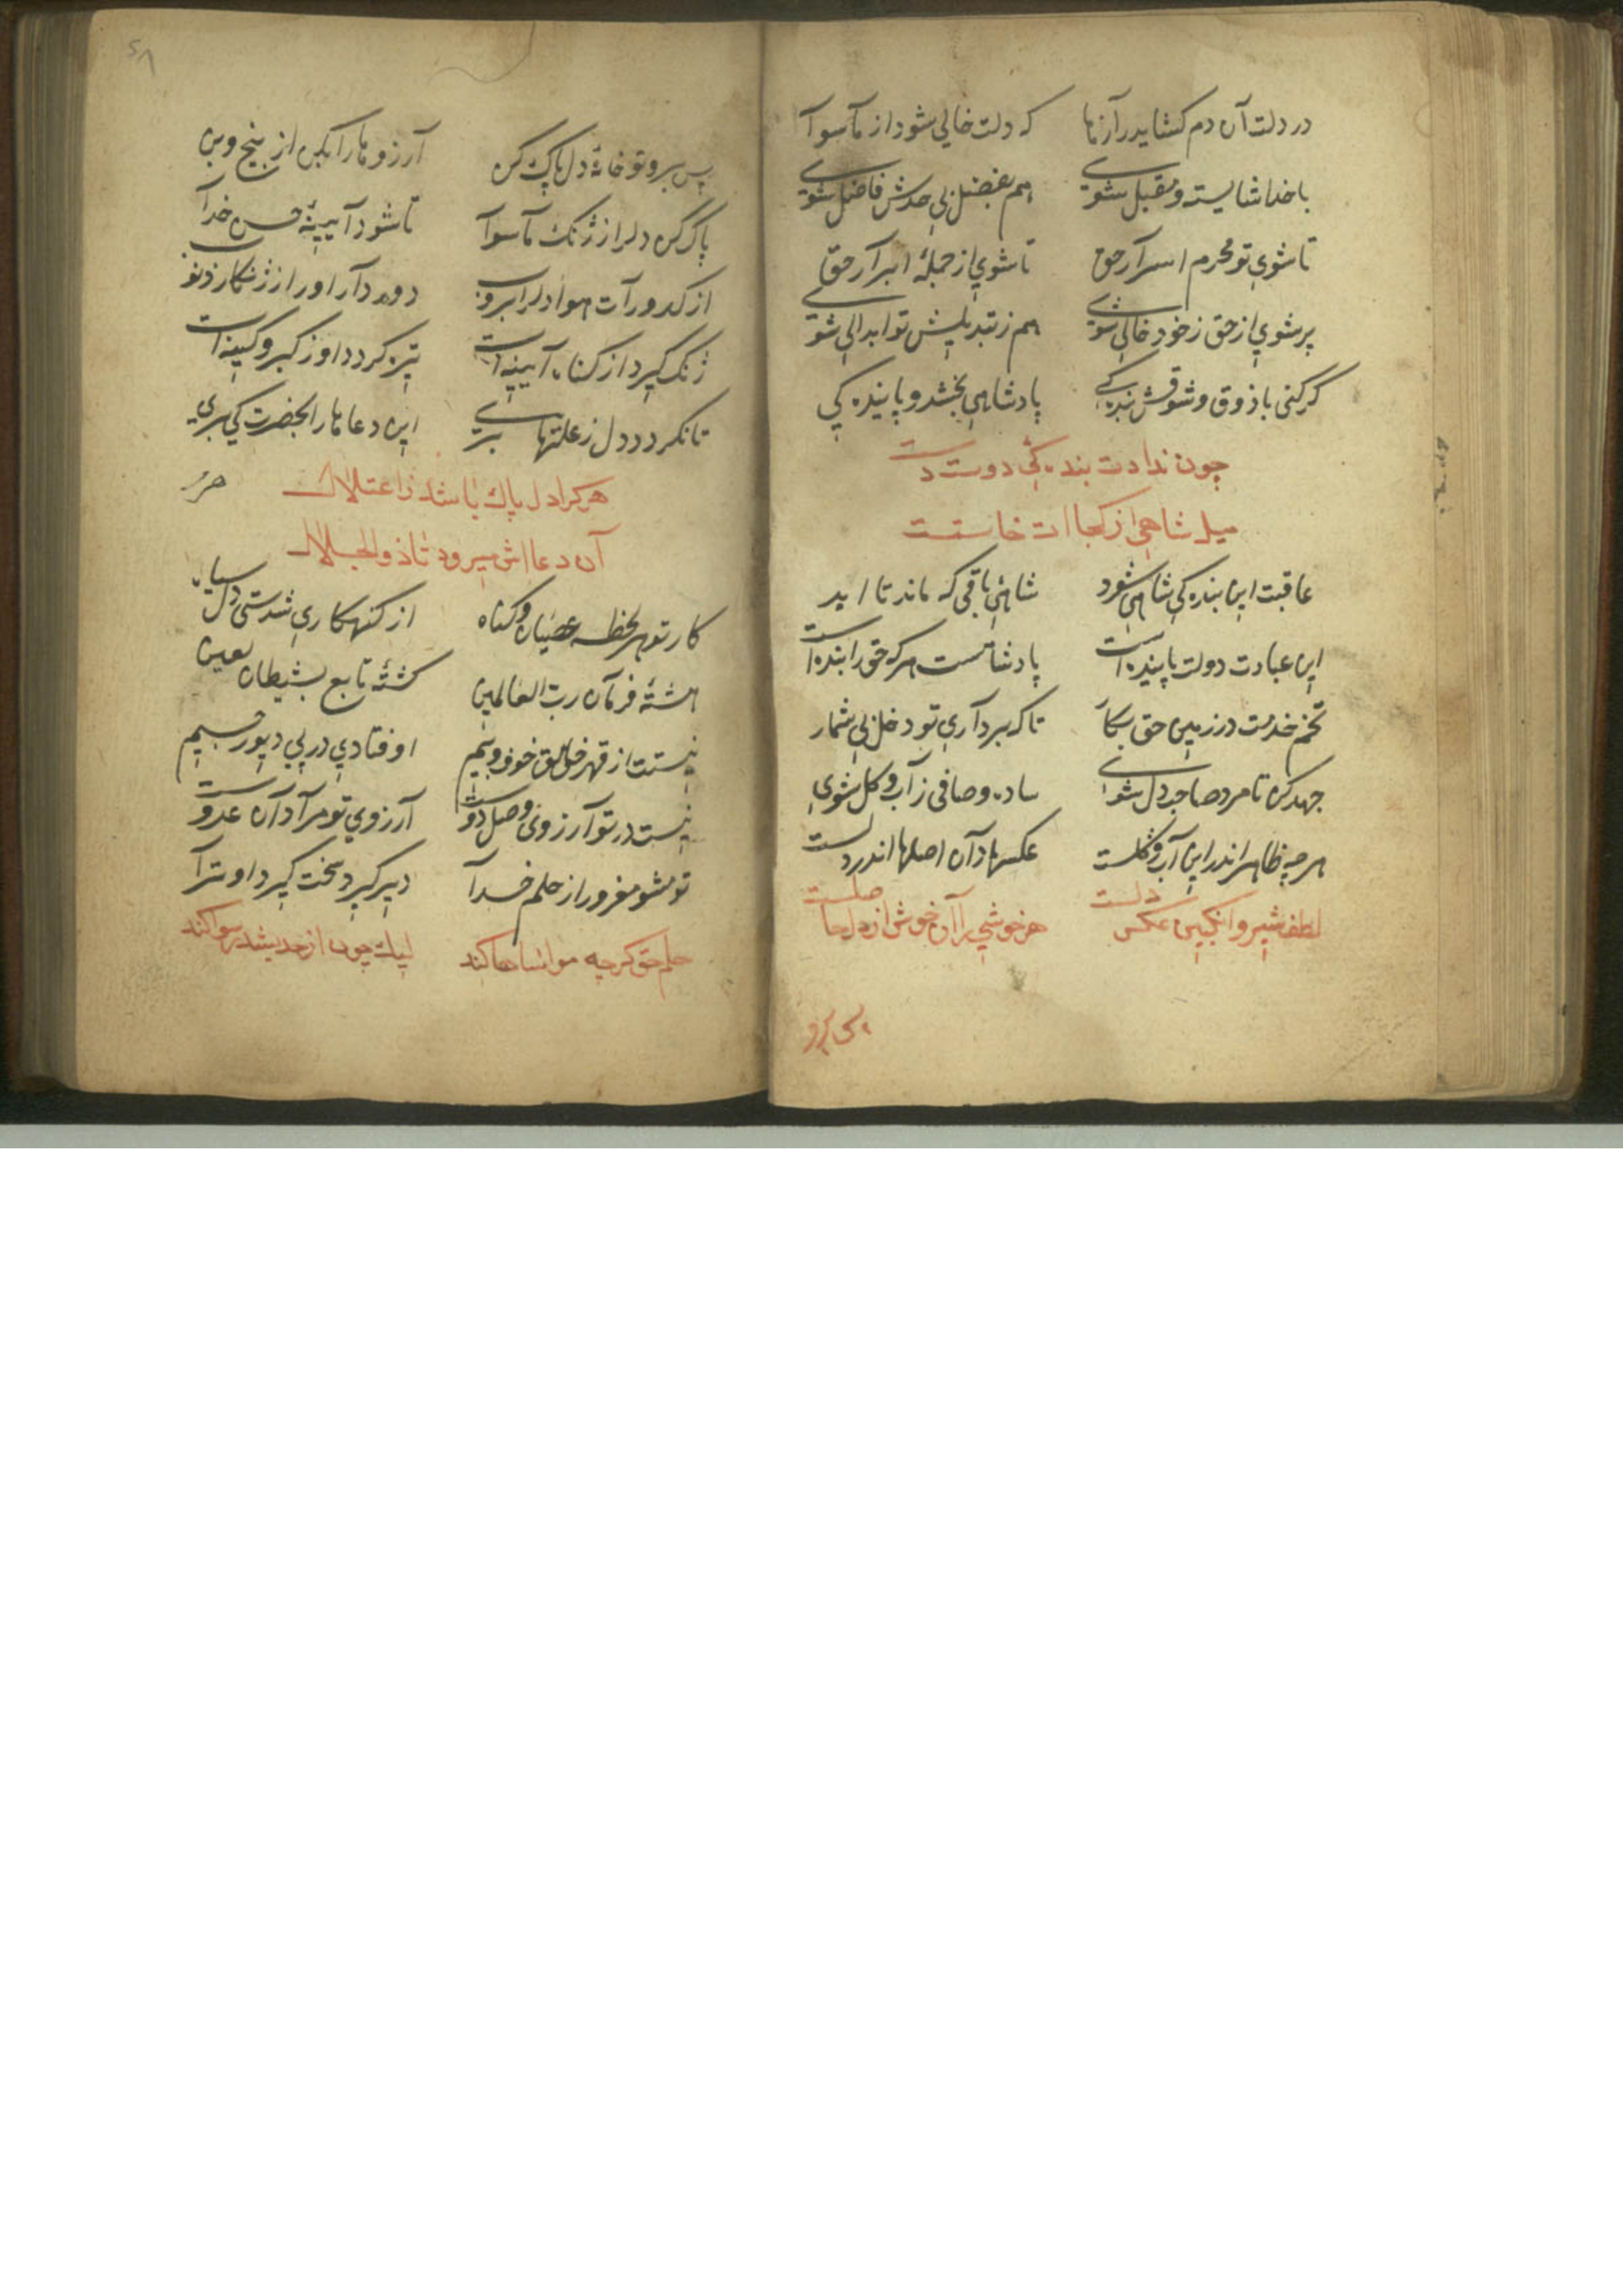 در دلت آن دم كشايد رازها كه دلت خالي شود از ماسوا
با خدا شايسته و مقبل شوي هم بفضل بي حدش فاضل شوي
تا شوي تو محرم اسرار حق تا شوي از جملۀ ابرار حق
پر شوي از حق ز خود خالي شوي هم ز تبديلش تو ابدالي شوي
كر كنی با ذوق و شوقش بنده كي پادشاهي بخشد و پاينده كي
چون ندادت بنده كي دوست دست
ميل شاهي از كجا ات خاستست
عاقبت اين بنده كي شاهي شود شاهئ باقی كه ماند تا ابد
اين عبادت دولت پاينده است پادشاست هر كه حق را بنده است
تخم خدمت در زمين حق بكار تا كه برداري تو دخل بي شمار
جهد كن تا مرد صاحبدل شوي ساده و صافی ز آب و كل شوي
هر چه ظاهر اندر اين آب و كلست عكسها دان اصلها اندر دلست
لطف شير و انكبين عكس دلست هر خوشي را آن خوش از دل حاصلست
پس برو تو خانۀ دل پاك كن آرزوها را بكن از بيخ و بن
پاك كن دل را ز ژنك ماسوا تا شود آيينۀ حسن خدا
از كدورات هوا دل را بروب دور دار او را ز ژنكار ذنوب
ژنك كيرد از كناه آيينه ات تيره كردد او ز كبر و كينه ات
تا نكردد دل ز علتها بري اين دعاها را بحضرت كي بري
هر كرا دل پاك باشد ز اعتلال
آن دعا اش ميرود تا ذوالجلال
كار تو هر لحظه عصيان و كناه از كنهكاري شدستی دل سياه
هشتۀ فرمان رب العالمين كشتۀ تابع بشيطان لعين
نيستت از قهر خالق خوف و بيم اوفتادي در پي ديو رجيم
نيست در تو آرزوی وصل دوست آرزوي تو مراد آن عدوست
تو مشو مغرور از حلم خدا دير كيرد سخت كيرد او ترا
حلم حق كرچه مواساها كند ليك چون از حد بشد رسوا كند